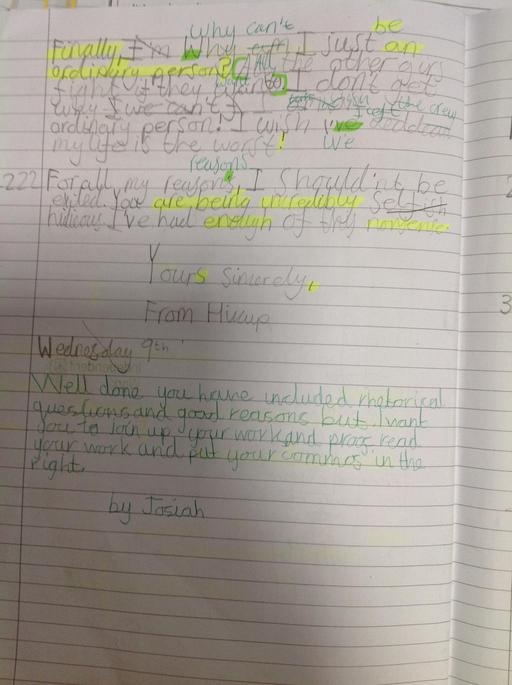 why can't be
Finally, I'm Why I just an
ordinary person? All the other guys
fight if they want to I don't get
why I we can't the crew
ordinary person! I wish I've
my life is the worst! We
reasons
222 For all my reasons, I Should'nt be
exiled. You are being incredibly Selfish
hidious. I've had enough of this nonsense
Yours Sincerely,
From Hiccup
Wednesday 9th
Well done you have included rhetorical
questions and good reasons but I want
you to Join up your work and proof read
your work and put your commas in the
right.
by Josiah
3